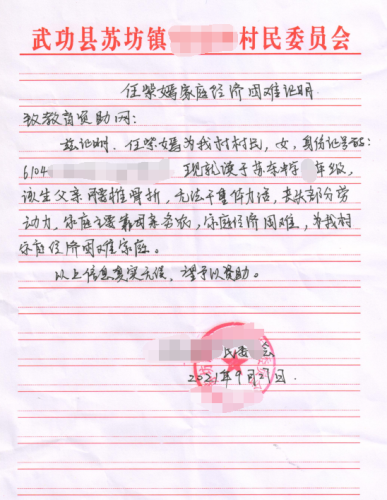 武功县苏坊镇 村民委员会
任紫嫣家庭经济困难证明
致教育资助网:
兹证明,任紫嫣为我村村民,女,身份证号码:
6104 现就读于苏东中学 年级,
该生父亲腰椎骨折,无法干重体力活,丧失部分劳
动力,家庭主要靠母亲务农,家庭经济困难,为我村
家庭经济困难家庭。
以上信息真实无误,望予以资助。
民委会
2021年9月27日.